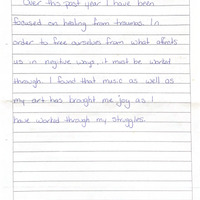 Over this past year I have been
focused on healing from traumas. In
order to free ourselves from what affects
us in negitive ways, it must be worked
through. I found that music as well as
my art has brought me joy as I
have worked through my struggles.